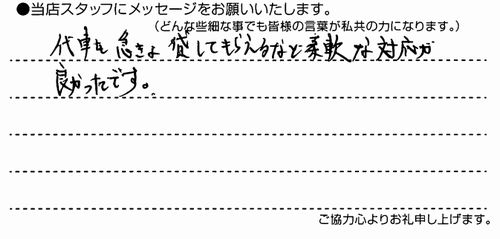 ●当店スタッフにメッセージをお願いいたします。
（どんな些細な事でも皆様の言葉が私共の力になります。）
代車も急きょ貸してもらえるなど柔軟な対応が
良かったです。
ご協力心よりお礼申し上げます。